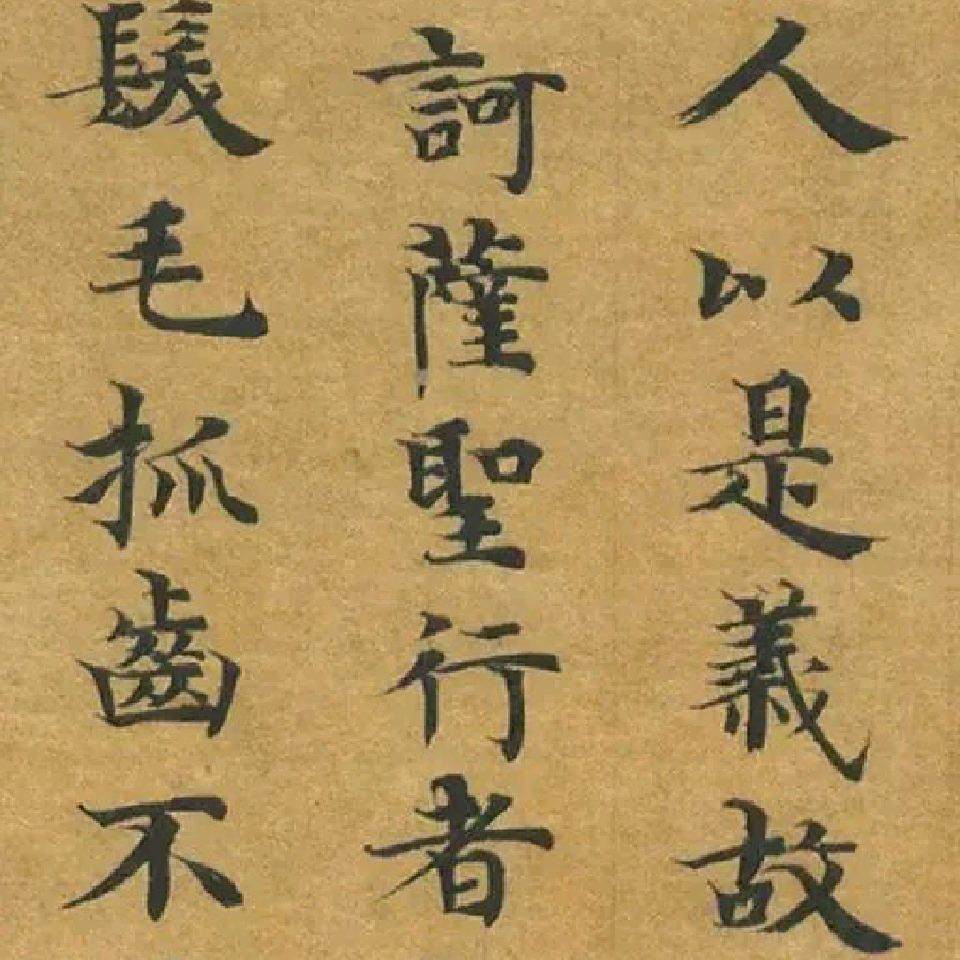 人以是義故
訶薩聖行者
髮毛抓齒不